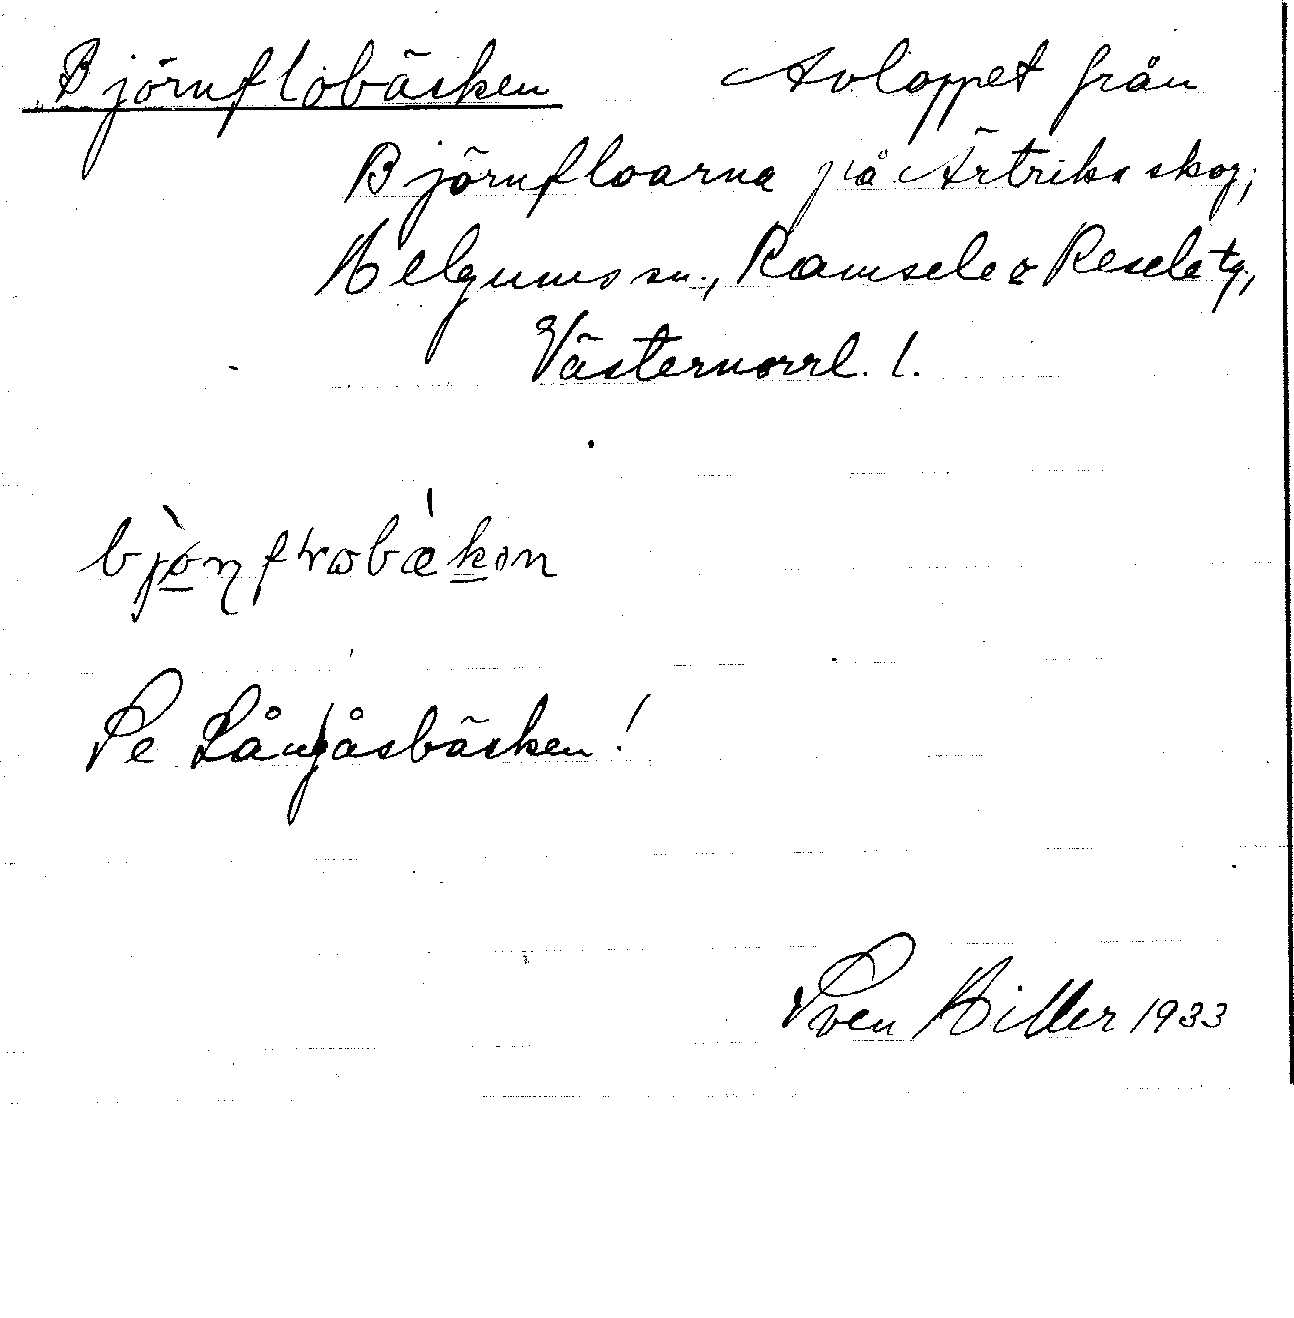 Björnflobäcken Avloppet från
Björnfloarna på Ärtriks skog,
Helgums sn., Ramsele o Resele tg,
Västernorrl. l.
Se Långåsbäcken!
Sven Hiller 1933